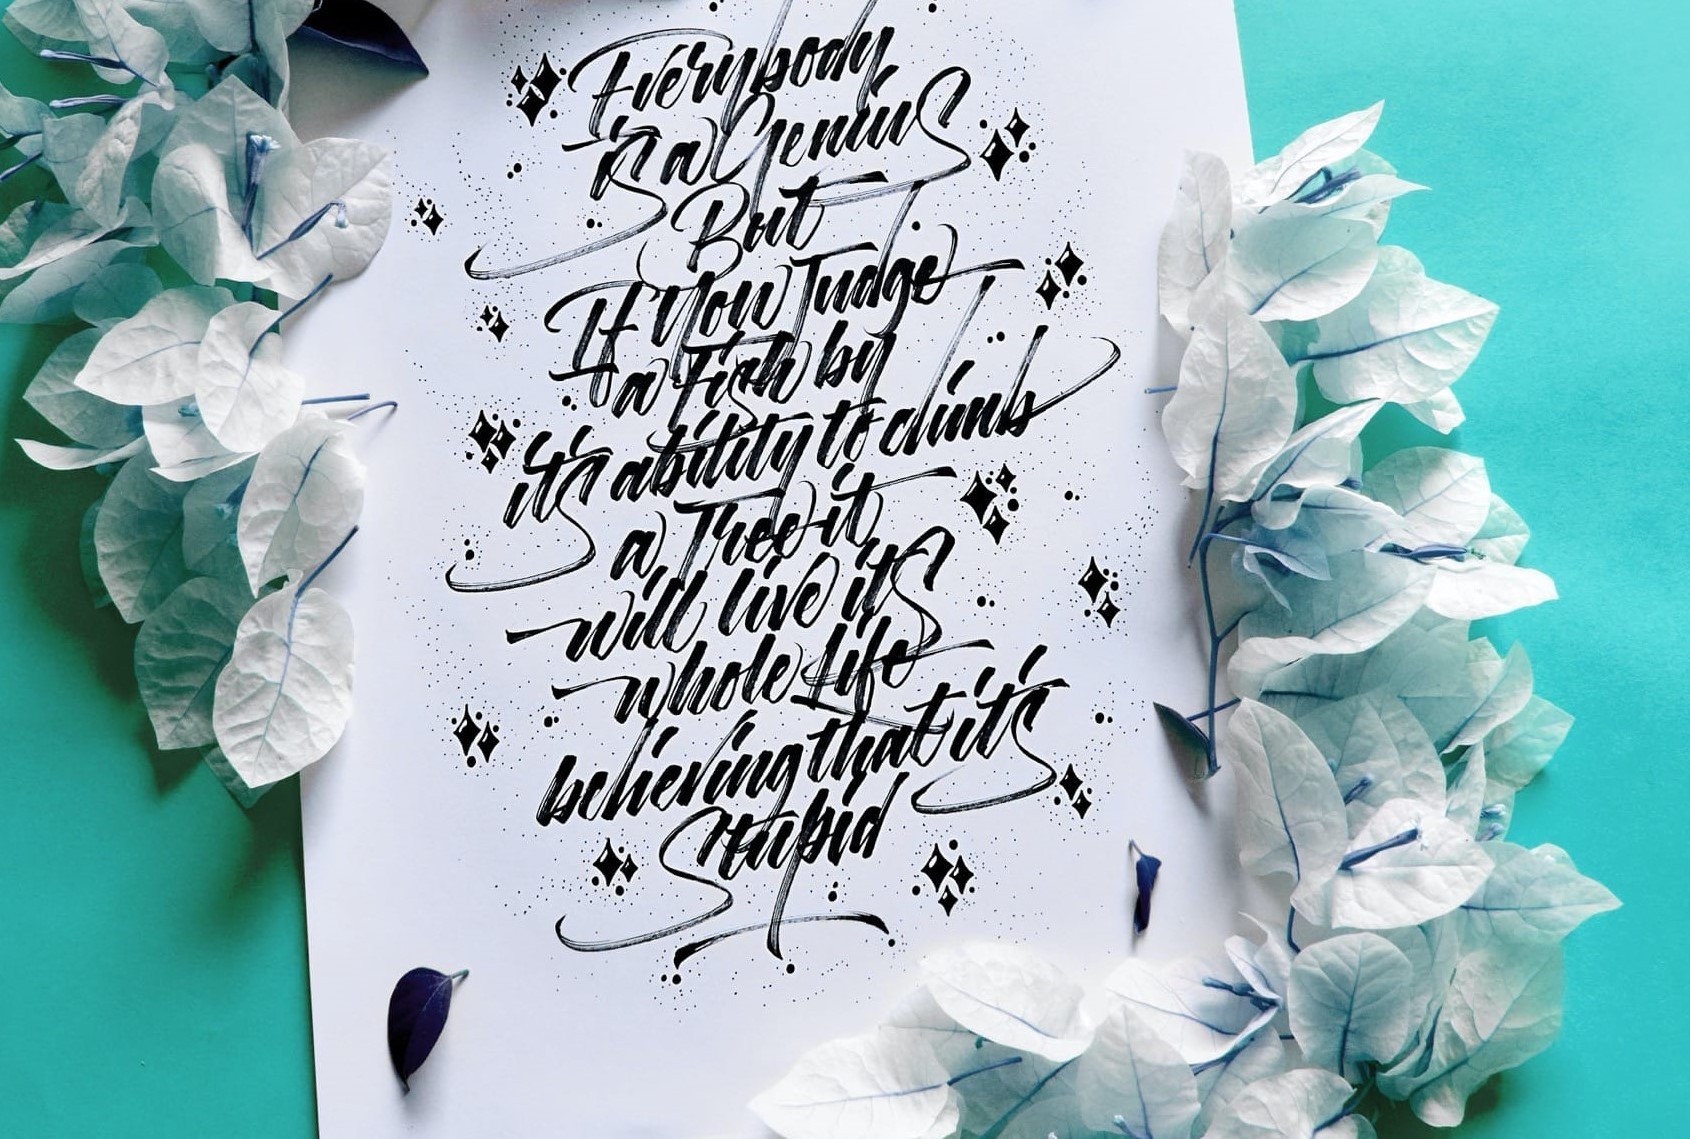 Everybody
is a Genius
But
If You Judge
a Fish by
it's ability to climb
a Tree it
will live its
whole Life
believing that it's
Stupid